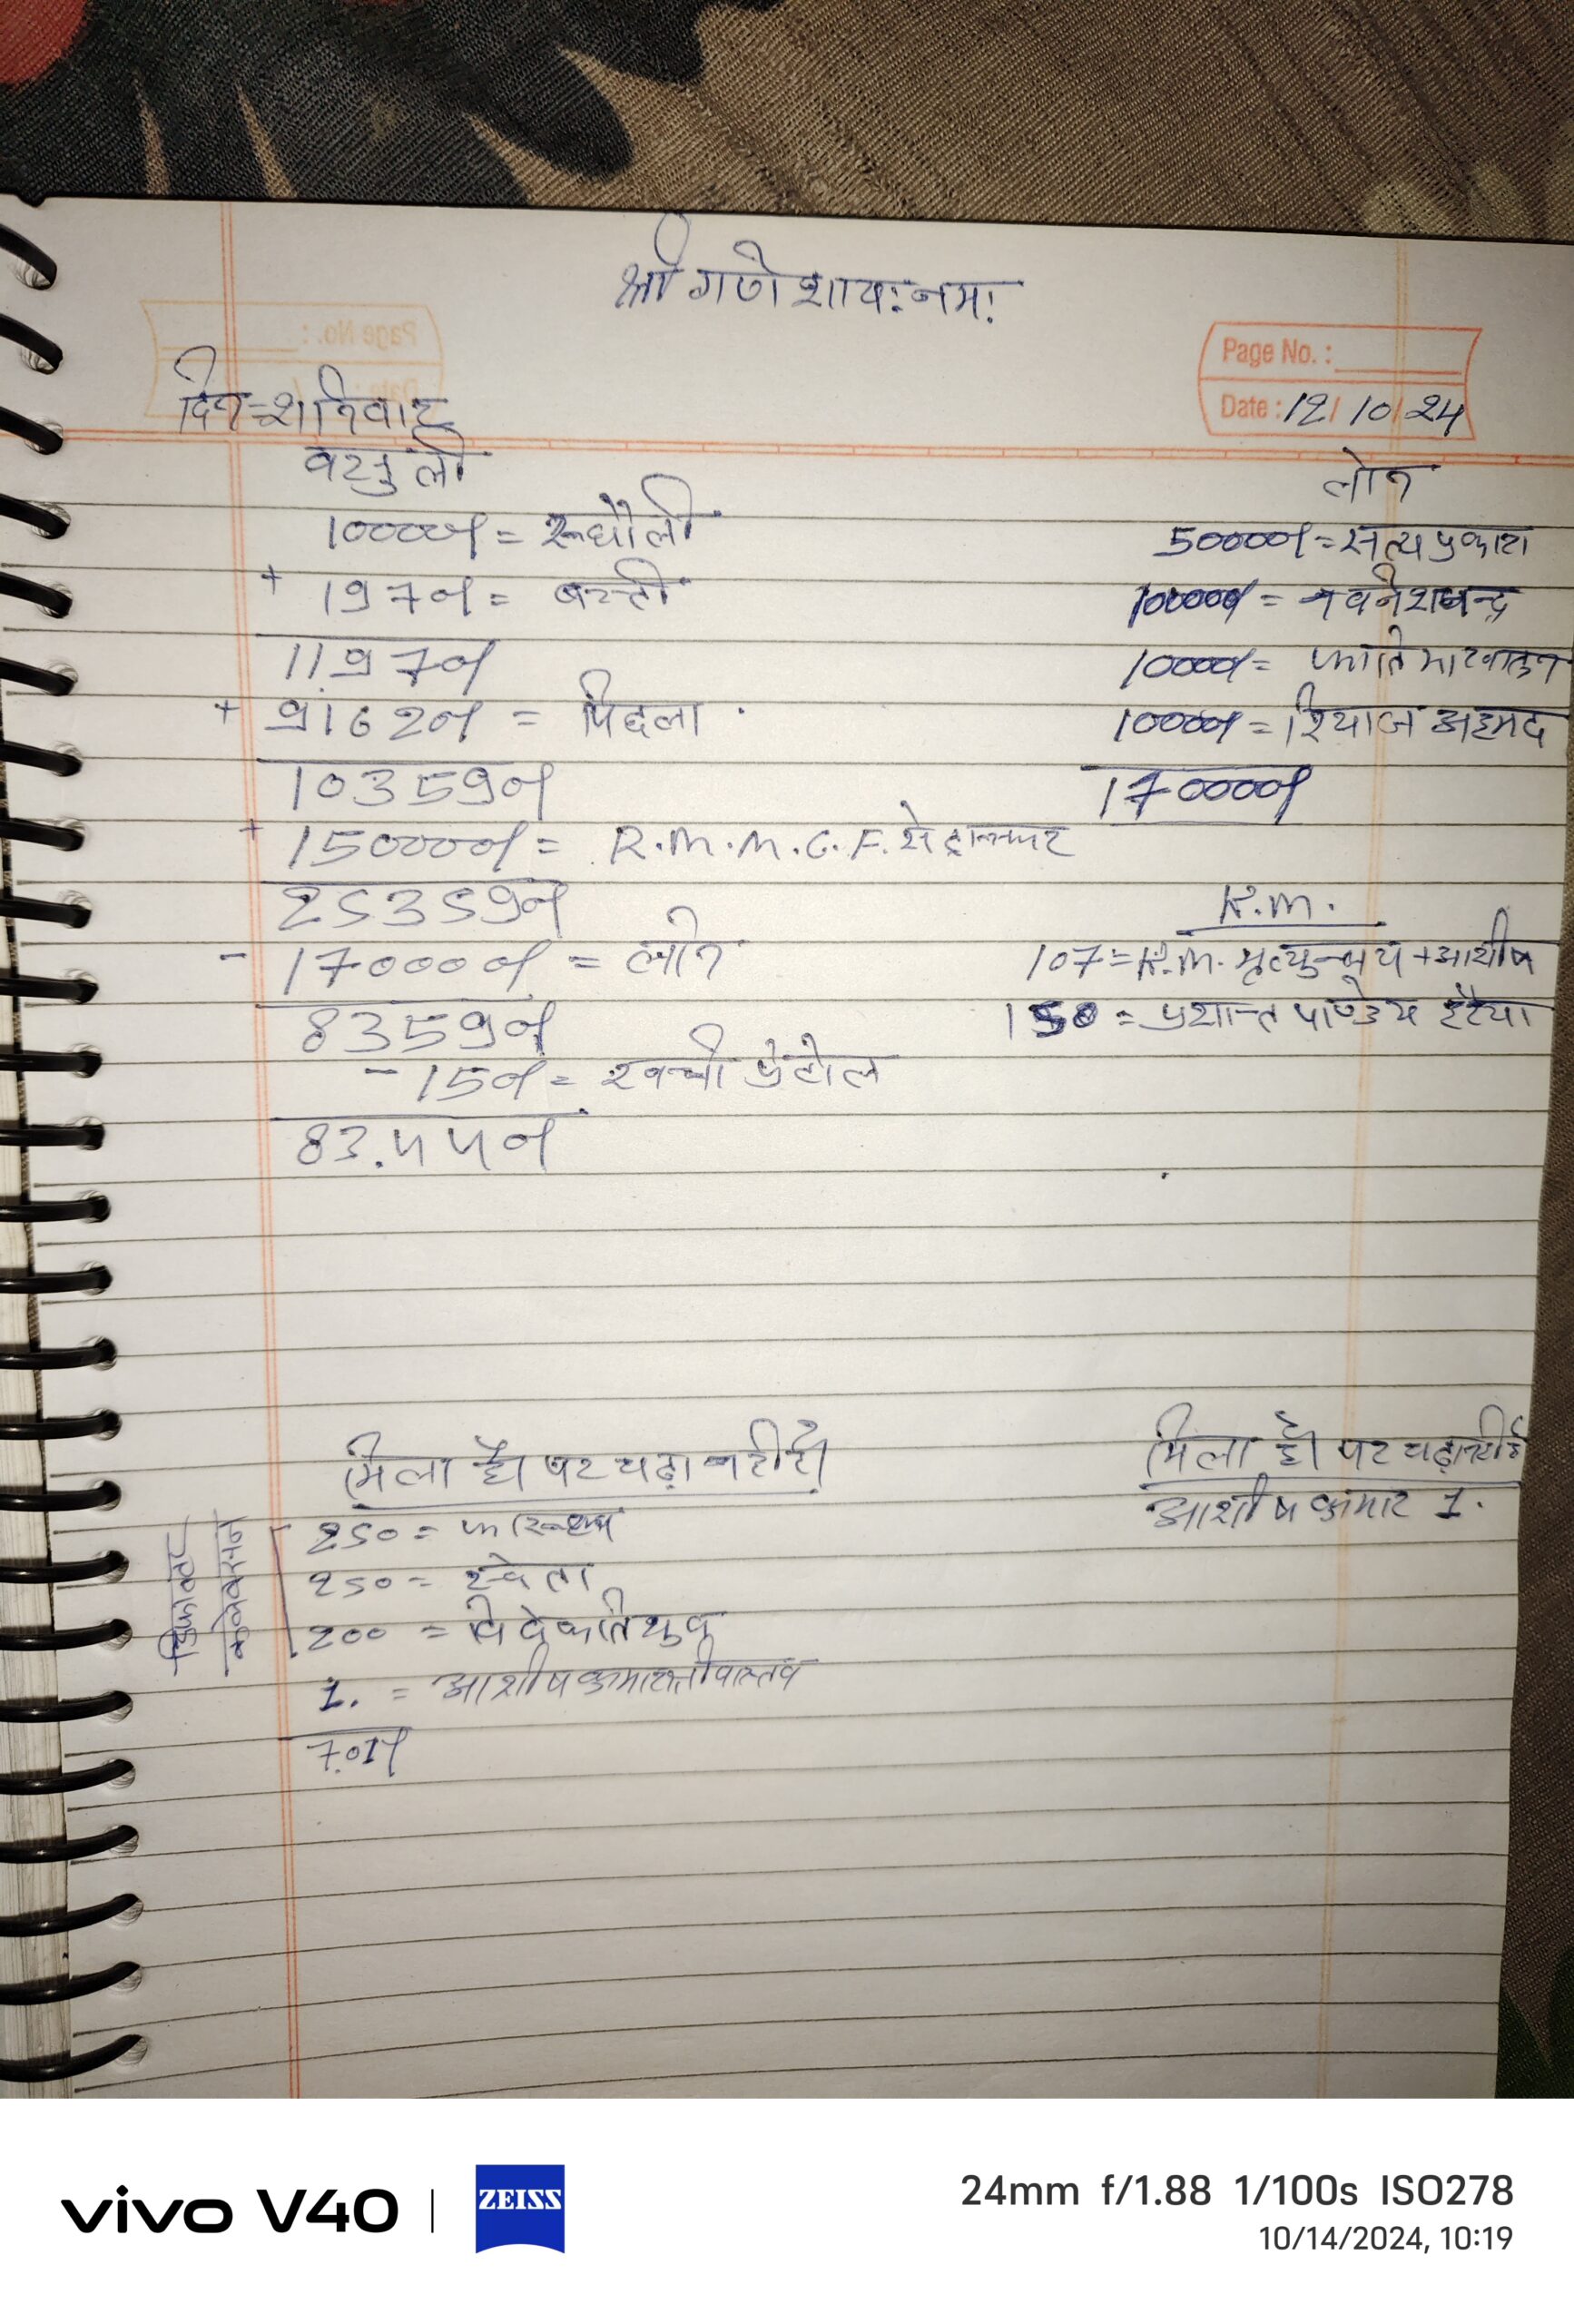 श्री गणेशायःनमः
Page No. :
Date : 12/10/24
दिन=शनिवार
वसुली
10000/=रूधौली
+ 1970/= बस्ती
11970/
+ 91620/ = पिछला
103590/
+ 150000/= R.M.M.C.F. से ट्रान्सफर
253590/
- 170000/ = लोन
83590/
-150/= खर्चा पेट्रोल
83.440/
लोन
50000/=सत्य प्रकाश
100000/= नवनेशचन्द्र
10000/= फातिमा खातुन
10000/=रियाज अहमद
170000/
R.M.
107=R.M. मृत्युन्जय+आशीष
150=प्रशान्त पाण्डेय हरैया
मिला है पर चढ़ा नहीं है
250=
250= श्वेता
200 =
1. = आशीष कुमार श्रीवास्तव
7.01/
कलेक्सन
मिला है पर चढ़ा नहीं है
आशीष कुमार 1.
vivo V40 | ZEISS
24mm f/1.88 1/100s ISO278
10/14/2024, 10:19